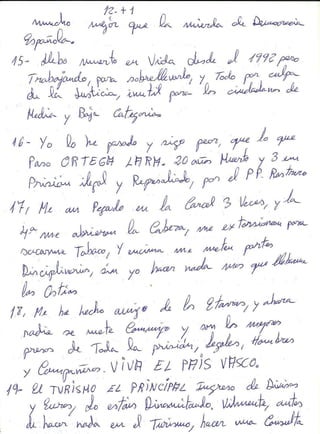 12.+1
mucho mejor que la mierda de Democracia
Española.
15- Llebo muerto en Vida desde el 1992 pero
Trabajando, para sobrellevarlo, y Todo por culpa
de la Justicia, inutil para los ciudadanos de
Media y Baja Categorias
16- Yo lo he pasado y sigo peor, que lo que
Paso ORTEGA LARA. 20 años Muerto y 3 en
Prisión ilegal y Represaliado, por el PP. Rastrero
17, Me an Pegado en la Carcel 3 Veces, y la
4ª me abrieron la Cabeza, me extorsionan para
sacarme Tabaco, Y encima me meten partes
Disciplinarios, sin yo hacer nada mas que llebarme
las Ostias
18, Me he hecho amigo de los Etarras, y ahora
nadie se mete Conmigo y son los mejores
presos de Toda la prisión, Legales, Hombres
y Compañeros. VIVA EL PAIS VASCO.
19- El TURISMO EL PRINCIPAL Ingreso de Divisas
y Euros, lo estais Dinamitando, Vilmente, antes
de hacer nada en el Turismo, hacer una Consulta